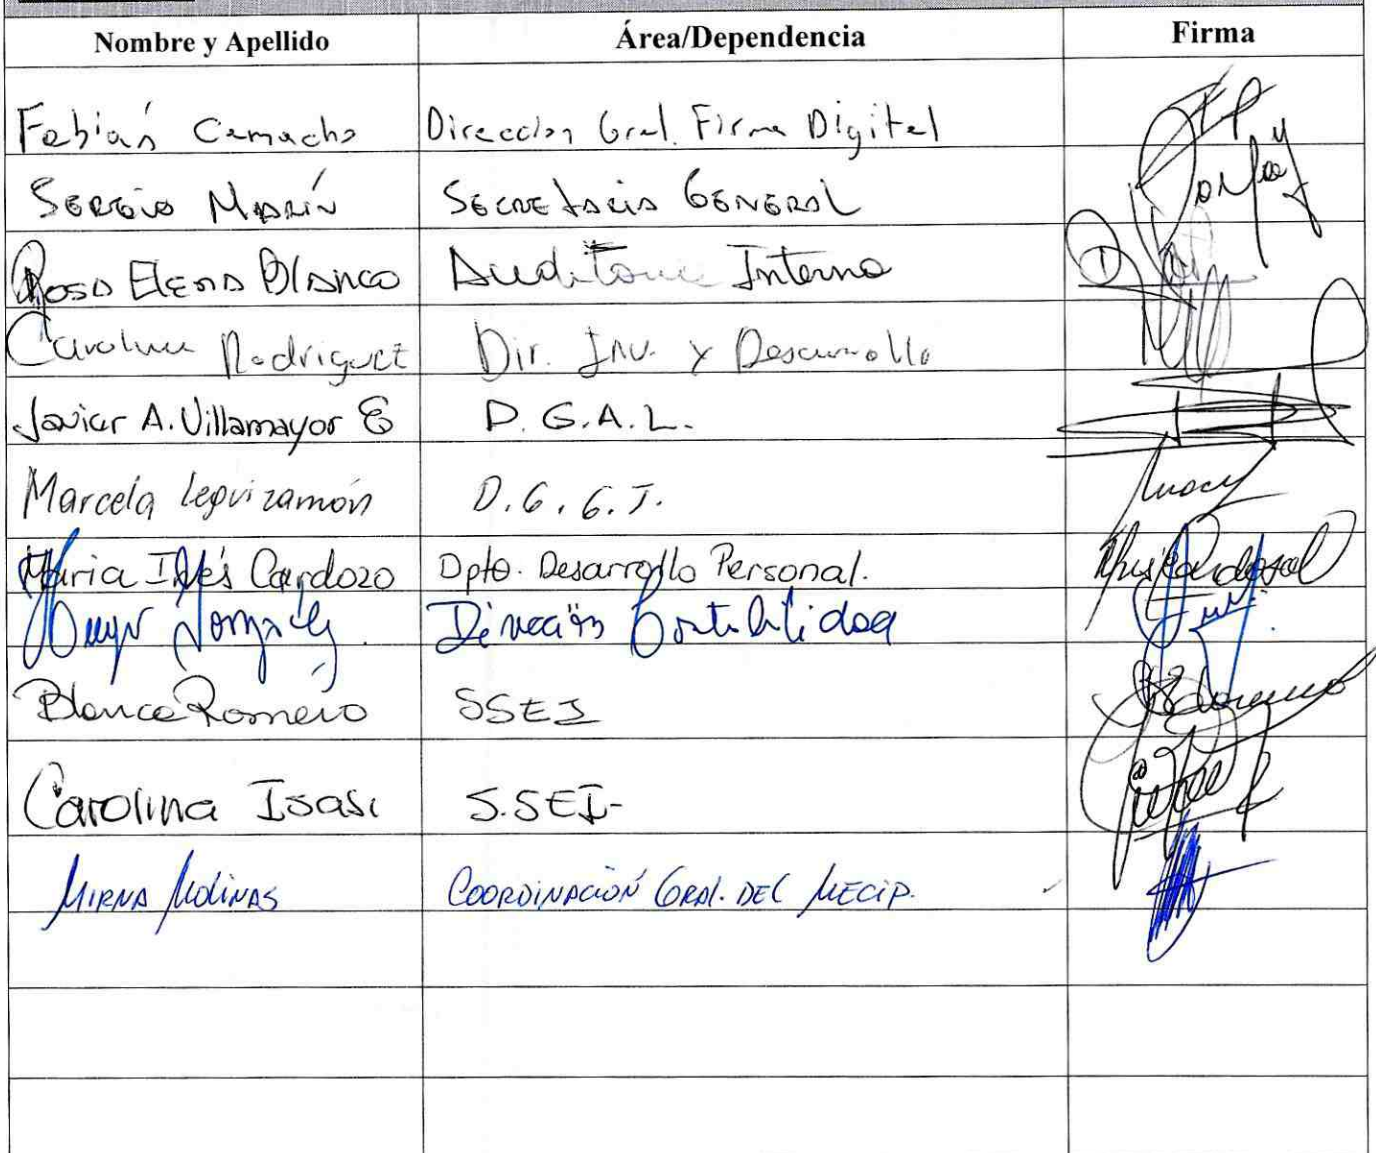 Nombre y Apellido Área/Dependencia Firma
Fabián Camacho Dirección Gral. Firma Digital
Sergio Marín Secretaria General
Rosa Elena Blanco Auditoria Interna
Carolina Rodriguez Dir. Inv. y Desarrollo
Javier A. Villamayor E D.G.A.L.
Marcela Leguizamón D.G.G.T.
Maria Inés Cardozo Dpto. Desarrollo Personal.
González Dirección Contabilidad
Blanca Romero SSEI
Carolina Isasi S.SEI-
Mirna Molinas Coordinación Gral. del MECIP.